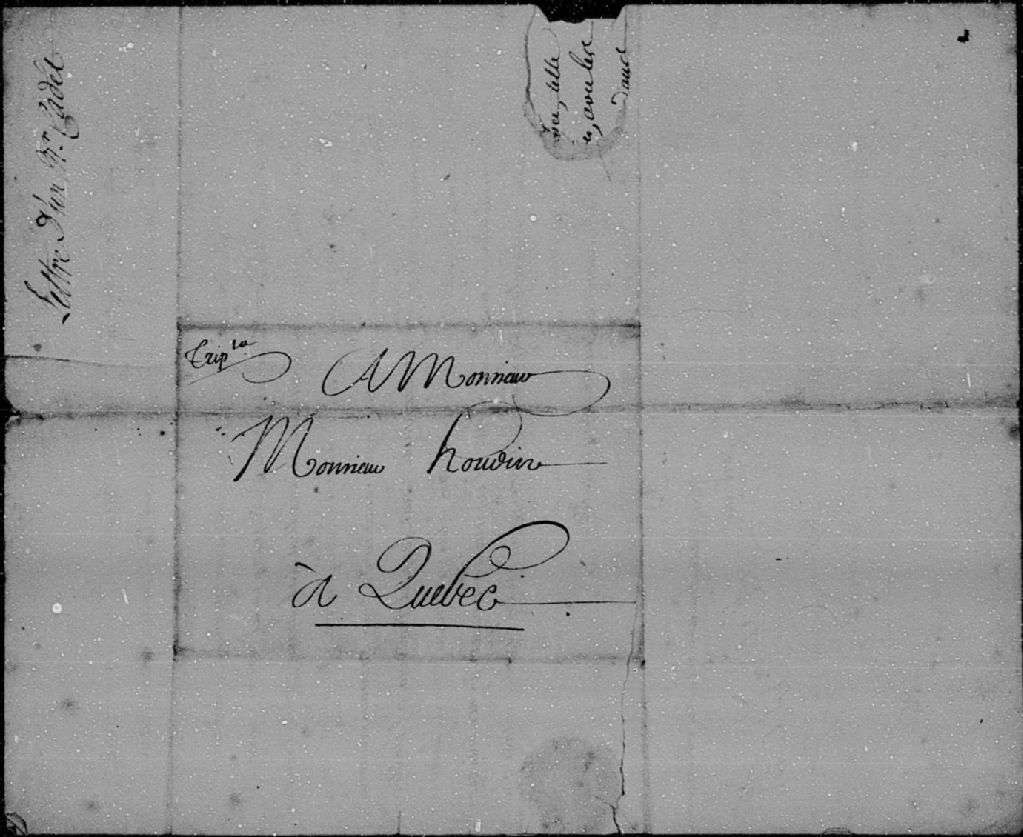 Lettre d'un Mr. Cadet
Trip.ta
A Monsieur
Monsieur houdin
à Quebec